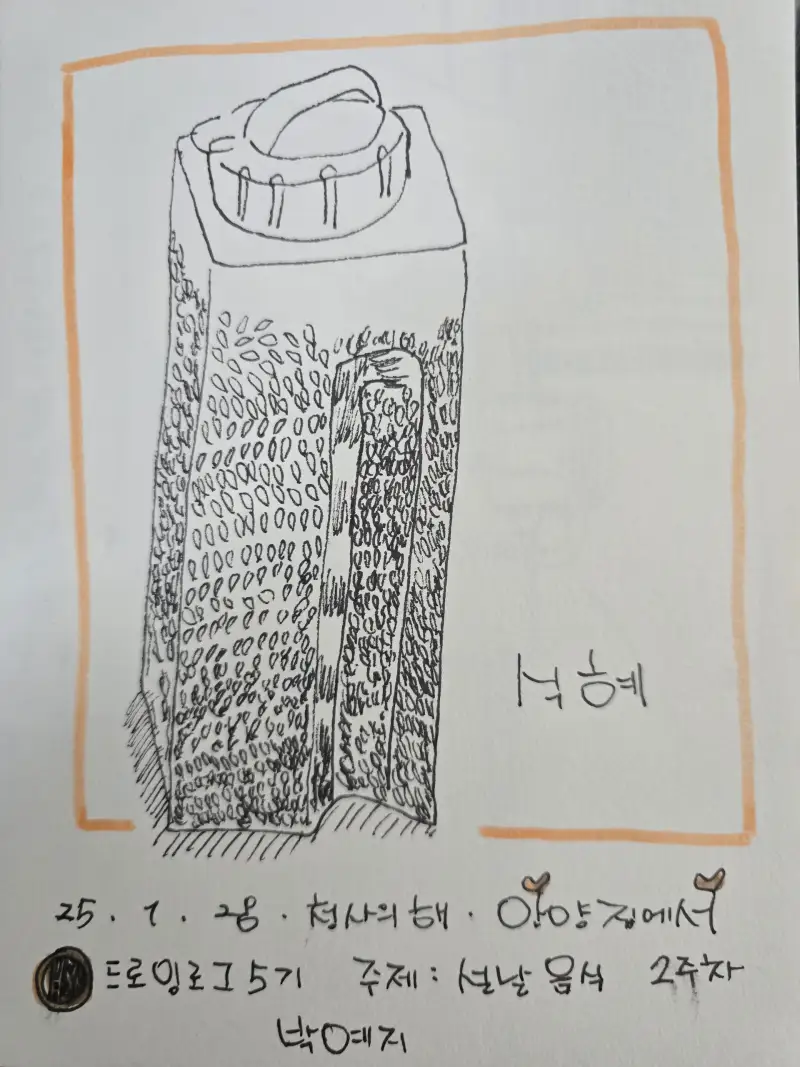 식혜
25. 1. 28. 청사의 해. 안양집에서
드로잉로그 5기 주제: 설날 음식 2주차
박예지